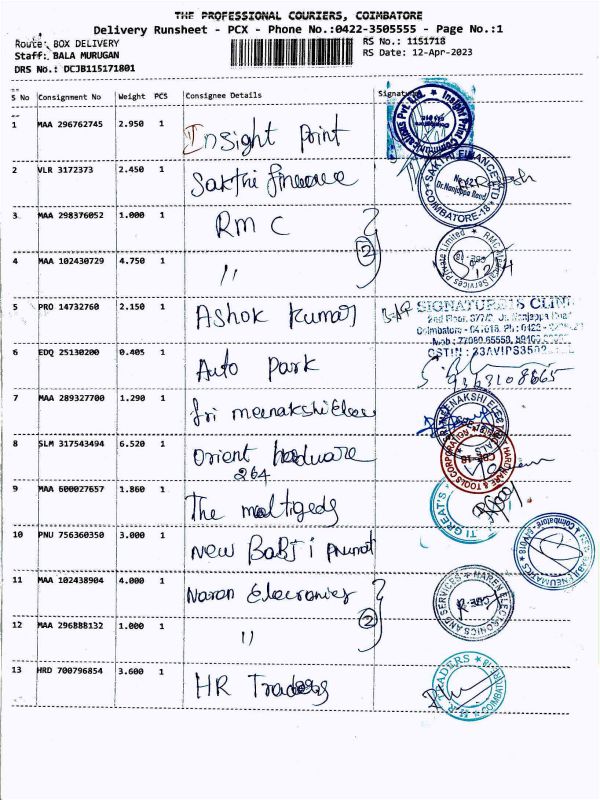 THE PROFESSIONAL COURIERS, COIMBATORE
Delivery Runsheet - PCX - Phone No.:0422-3505555 - Page No.:1
Route: BOX DELIVERY
RS No.: 1151718
Staff: BALA MURUGAN
RS Date: 12-Apr-2023
DRS No.: DCJB115171801
S No Consignment No Weight PCS Consignee Details Signature
1 MAA 296762745 2.950 1 Insight Print
2 VLR 3172373 2.450 1 Sakthi finance
3 MAA 298376052 1.000 1 RMC
2
4 MAA 102430729 4.750 1 "
5 PRO 14732760 2.150 1 Ashok Kumar
6 EDQ 25130200 0.405 1 Auto Park
7 MAA 289327700 1.290 1 Sri meenakshi Elec
8 SLM 317543494 6.520 1 Orient hardware
264
9 MAA 600027657 1.860 1 The
10 PNU 756360350 3.000 1 New
11 MAA 102438904 4.000 1 Naran Electronics
2
12 MAA 296888132 1.000 1 "
13 HRD 700796854 3.600 1 HR Traders
Insight Print Communications Pvt. Ltd.
SAKTHI FINANCE LTD
Dr.Nanjappa Road
COIMBATORE-18
RMC Medical Services Private Limited
SIGNATURE
Mob : 77080 65550
GSTIN : 33AVIPS3502
MEENAKSHI ELEC
HARDWARE & TOOLS CORPORATION
CBE-18
TI GREAT'S
PNEUMATICS
Coimbatore
NAREN ELECTRONICS AND SERVICES
TRADERS
COIMBATORE